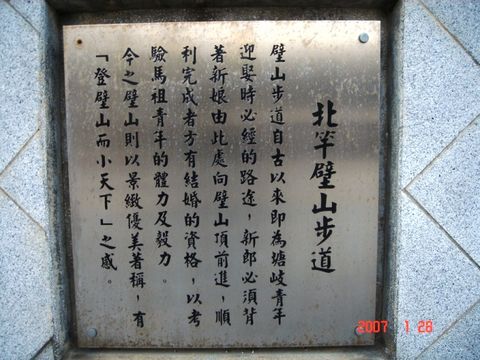 北竿壁山步道
壁山步道自古以來即為塘岐青年
迎娶時必經的路途，新郎必須背
著新娘由此處向壁山頂前進，順
利完成者方有結婚的資格，以考
驗馬祖青年的體力及毅力。
今之壁山則以景緻優美著稱，有
「登壁山而小天下」之感。
2007 1 28